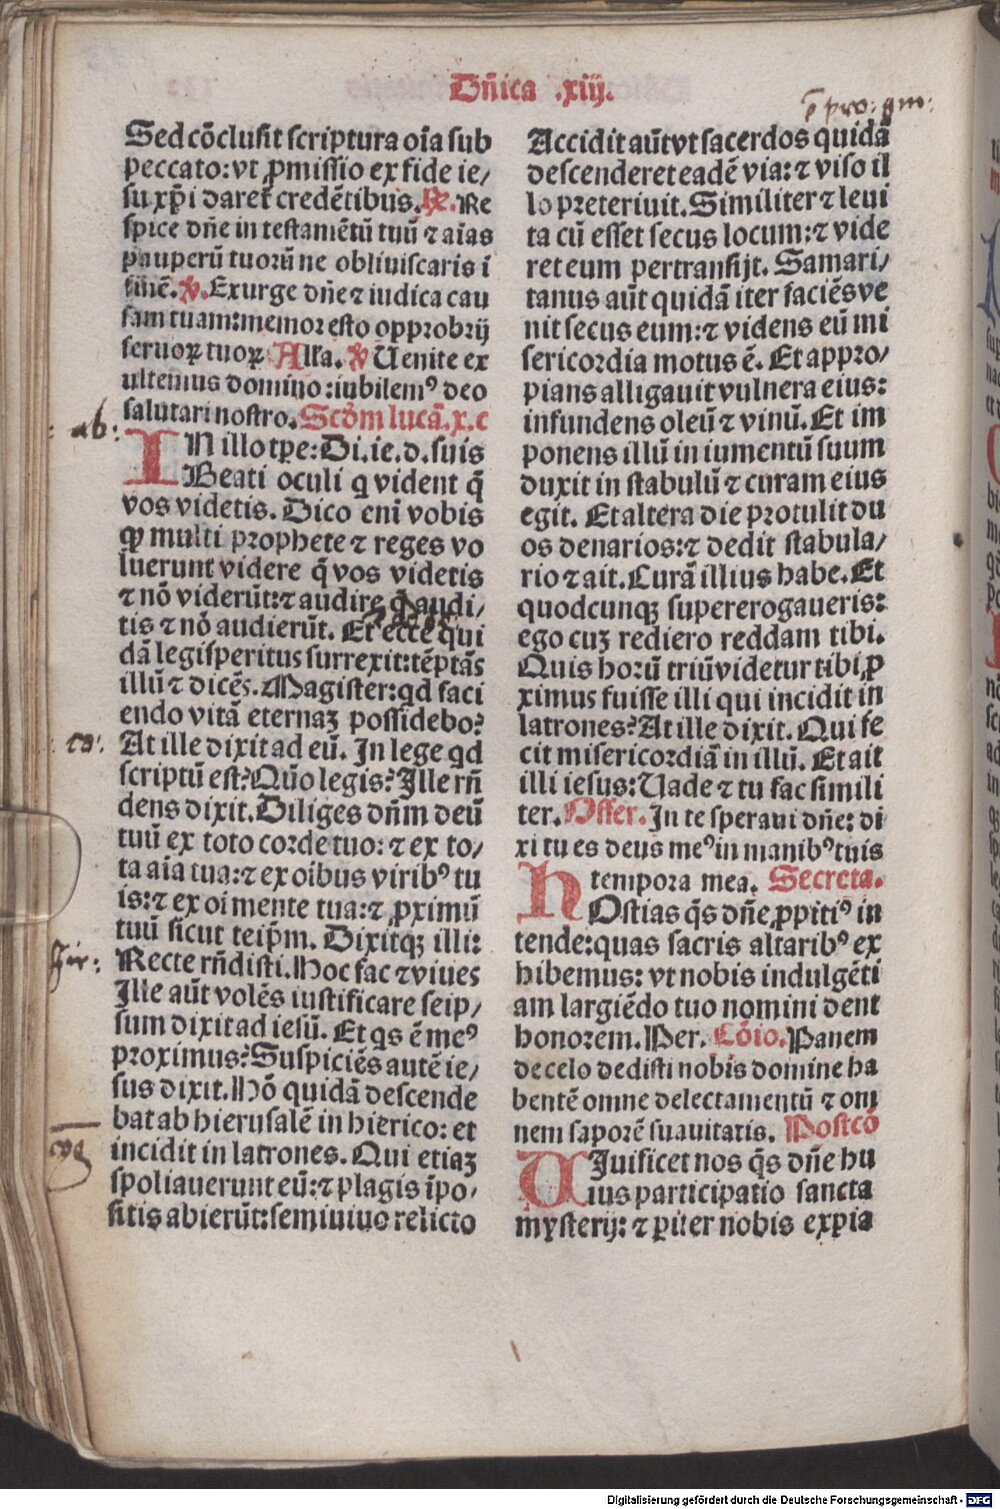 Dn̄ica .xiij.
Sed cōclusit scriptura oīa sub
peccato: vt ꝓmissio ex fide ie/
su xp̄i daret᷑ credētibus. R̷. Re
spice dn̄e in testamētū tuū ⁊ aīas
pauperū tuorū ne obliuiscaris ī
finē. V̷. Exurge dn̄e ⁊ iudica cau
sam tuam: memor esto opprobrij
seruoꝝ tuoꝝ Alla. V̷ Uenite ex
ultemus domino: iubilemꝰ deo
salutari nostro. Scd̓m lucā. x. c
ab:
IN illo tꝑe: Di. ie. d. suis
Beati oculi q vident q̄
vos videtis. Dico enī vobis
ꝙ multi prophete ⁊ reges vo
luerunt videre q̄ vos videtis
⁊ nō viderūt: ⁊ audire q̄ audi/
tis ⁊ nō audierūt. Et ecce qui
dā legisperitus surrexit: tēptās
illū ⁊ dicēs. Magister: qd faci
endo vitā eternaꝫ possidebo?
co:
At ille dixit ad eū. In lege qd
scriptū est? Quō legis? Ille rn̄
dens dixit. Diliges dn̄m deū
tuū ex toto corde tuo: ⁊ ex to/
ta aīa tua: ⁊ ex oībus viribꝰ tu
is: ⁊ ex oī mente tua: ⁊ ꝓximū
tuū sicut teip̄m. Dixitqꝫ illi:
Recte rn̄disti. Hoc fac ⁊ viues
Ille aūt volēs iustificare seip/
sum dixit ad iesū. Et q̄s ē meꝰ
proximus? Suspiciēs autē ie/
sus dixit. Hō quidā descende
bat ab hierusalē in hierico: et
incidit in latrones. Qui etiaꝫ
spoliauerunt eū: ⁊ plagis īpo/
sitis abierūt: semiuiuo relicto
Accidit aūt vt sacerdos quidā
descenderet eadē via: ⁊ viso il
lo preteriuit. Similiter ⁊ leui
ta cū esset secus locum: ⁊ vide
ret eum pertransijt. Samari/
tanus aūt quidā iter faciēs ve
nit secus eum: ⁊ videns eū mi
sericordia motus ē. Et appro/
pians alligauit vulnera eius:
infundens oleū ⁊ vinū. Et im
ponens illū in iumentū suum
duxit in stabulū ⁊ curam eius
egit. Et altera die protulit du
os denarios: ⁊ dedit stabula/
rio ⁊ ait. Curā illius habe. Et
quodcunqꝫ supererogaueris:
ego cuꝫ rediero reddam tibi.
Quis horū triū videtur tibi ꝓ
ximus fuisse illi qui incidit in
latrones? At ille dixit. Qui fe
cit misericordiā in illū. Et ait
illi iesus: Uade ⁊ tu fac simili
ter. Offer. In te speraui dn̄e: di
xi tu es deus meꝰ in manibꝰ tuis
tempora mea. Secreta.
HOstias q̄s dn̄e ꝓpitiꝰ in
tende: quas sacris altaribꝰ ex
hibemus: vt nobis indulgēti
am largiēdo tuo nomini dent
honorem. Per. Cōio. Panem
de celo dedisti nobis domine ha
bentē omne delectamentū ⁊ om
nem saporē suauitatis. Postcō
UIuificet nos q̄s dn̄e hu
ius participatio sancta
mysterij: ⁊ ꝑiter nobis expia
Digitalisierung gefördert durch die Deutsche Forschungsgemeinschaft - DFG